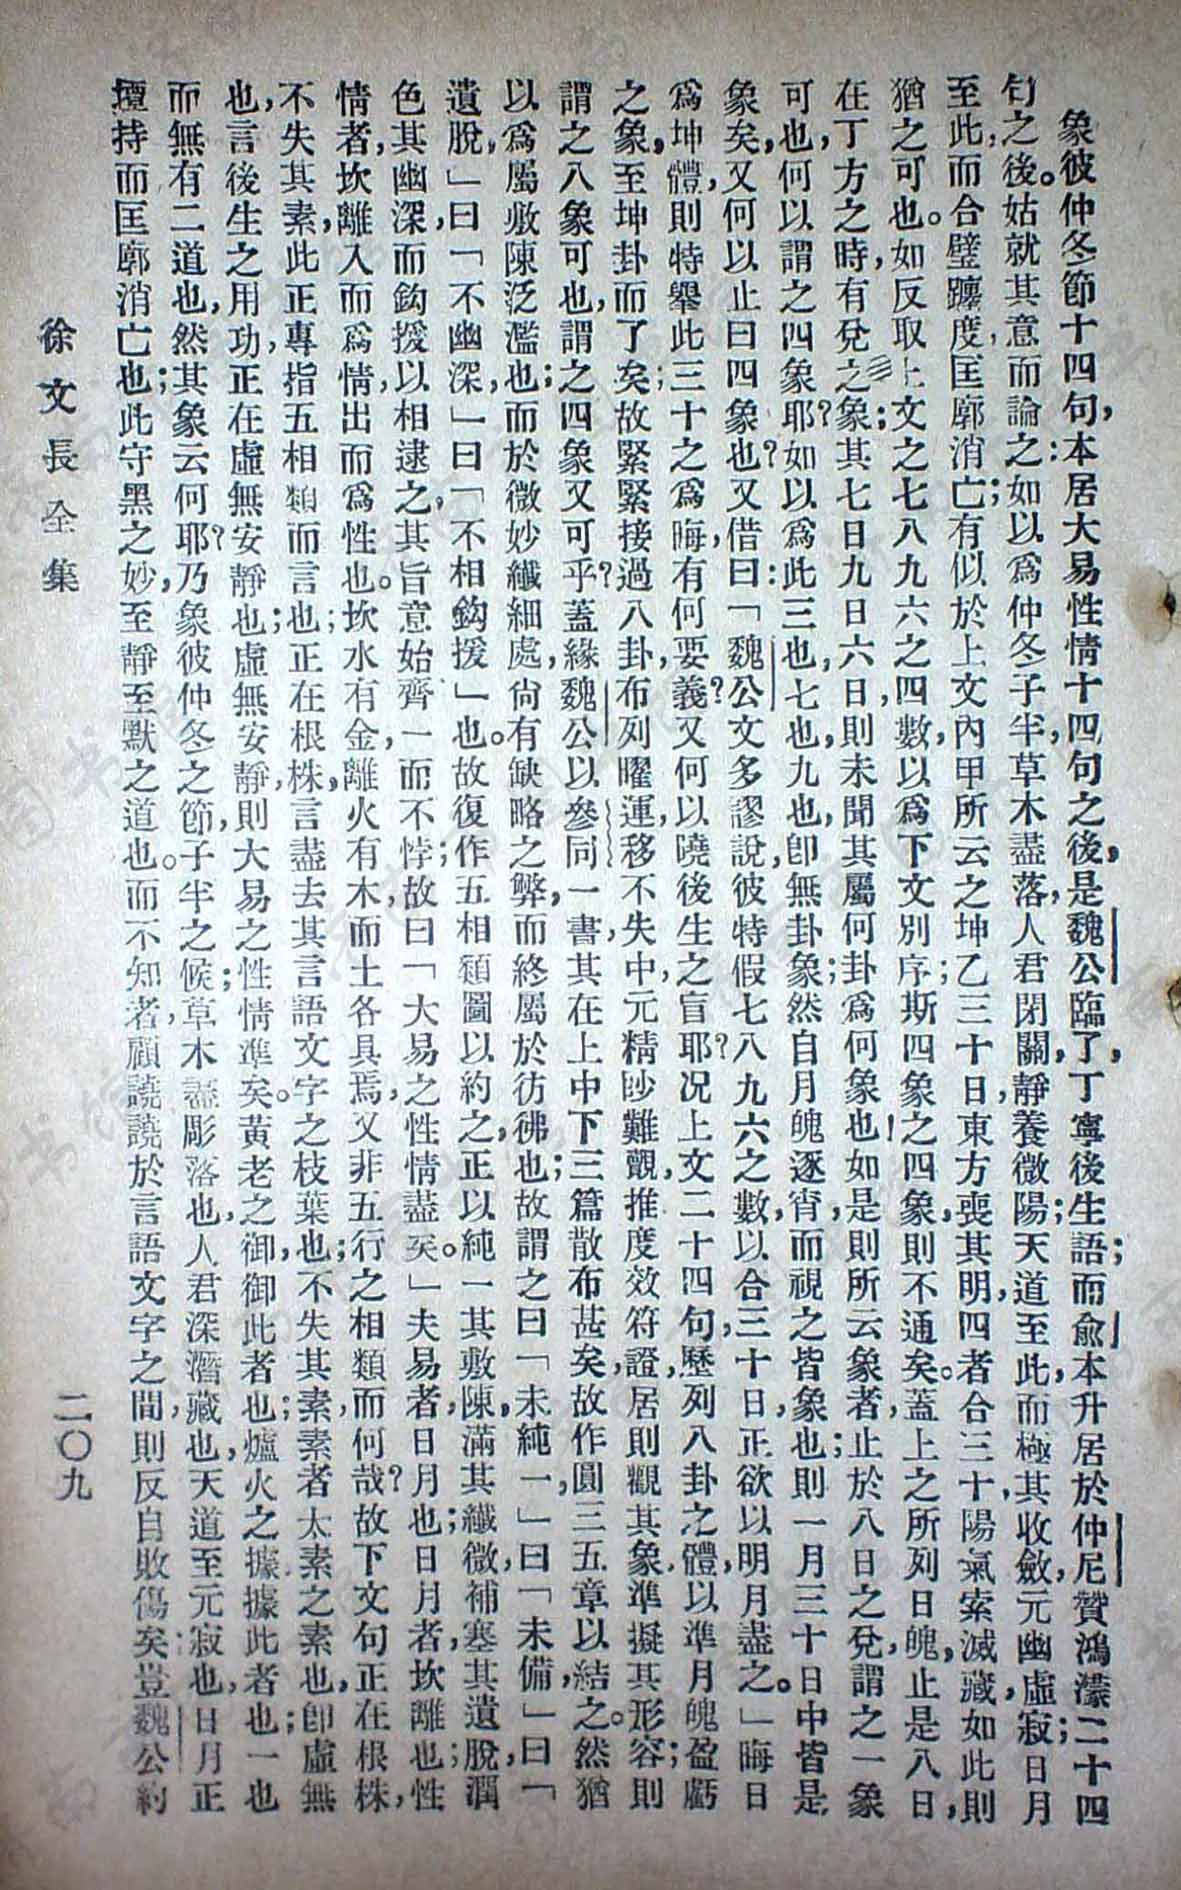 象彼仲冬節十四句，本居大易性情十四句之後，是魏公臨了，丁寧後生；語而俞本升居於仲尼贊鴻濛二十四
句之後。姑就其意而論之：如以爲仲冬子半，草木盡落，人君閉關，靜養微陽；天道至此，而極其收斂，元幽虛寂，日月
至此，而合璧躔度，匡廓消亡；有似於上文內甲所云之坤乙三十日，東方喪其明，四者合三十，陽氣索滅藏，如此，則
猶之可也。如反取上文之七八九六之四數，以爲下文別序，斯四象之四象，則不通矣。蓋上之所列日魄，止是八日，
在丁方之時，有兌之☱象；其七日九日六日，則未聞其屬何卦爲何象也！如是則所云象者，止於八日之兌，謂之一象
可也，何以謂之四象耶？如以爲此三也，七也，九也，卽無卦象；然自月魄逐宵，而視之皆象也；則一月三十日中皆是
象矣，又何以止曰四象也？又借曰：「魏公文多謬說，彼特假七八九六之數，以合三十日，正欲以明月盡之。」晦日
爲坤體，則特舉此三十之爲晦，有何要義？又何以曉後生之盲耶？况上文二十四句，歷列八卦之體，以準月魄盈虧
之象，至坤卦而了矣；故緊緊接過八卦，布列曜運，移不失中，元精眇難覩，推度效符證，居則觀其象，準擬其形容；則
謂之八象可也，謂之四象又可乎？蓋緣魏公以參同一書，其在上中下三篇散布甚矣，故作圓三五章以結之。然猶
以爲屬敷陳泛濫也；而於微妙纖細處，尙有缺略之弊，而終屬於彷彿也；故謂之曰「未純一」，曰「未備」，曰「
遺脫，」曰「不幽深，」曰「不相鈎援」也。故復作五相類圖以約之，正以純一其敷陳，滿其纖微，補塞其遺脫，潤
色其幽深，而鈎援以相逮之，其旨意始齊一而不悖；故曰「大易之性情盡矣。」夫易者，日月也；日月者，坎離也；性
情者，坎離入而爲情，出而爲性也。坎水有金，離火有木，而土各具焉，又非五行之相類而何哉？故下文句正在根株，
不失其素，此正專指五相類而言也；正在根株，言盡去其言語文字之枝葉也；不失其素，素者太素之素也，卽虛無
也，言後生之用功，正在虛無安靜也；虛無安靜，則大易之性情準矣。黃老之御，御此者也；爐火之據，據此者也；一也
而無有二道也，然其象云何耶？乃象彼仲冬之節，子半之候；草木盡彫落也，人君深潛藏也，天道至元寂也，日月正
壇持而匡廓消亡也；此守黑之妙，至靜至默之道也。而不知者，顧譊譊於言語文字之間，則反自敗傷矣；豈魏公約
徐文長全集
二〇九